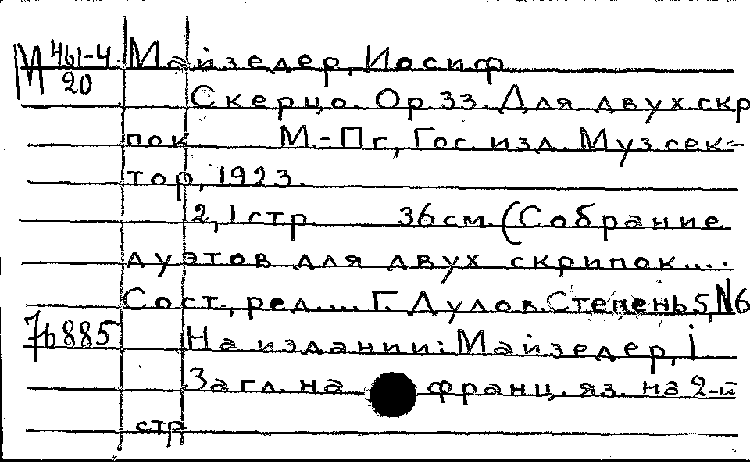 М 461-4 Майзедер, Иосиф
20
Скерцо. Op 33. Для двух скр
пок М.-Пг, Гос. изд. Муз. сек-
тор, 1923.
2, 1 стр. 36 см. (Собрание
дуэтов для двух скрипок....
Сост., ред.... Г. Дулов. Степень 5, N6
7b885 На издании: Майзедер, i
Загл. на франц. яз. на 2-й
стр